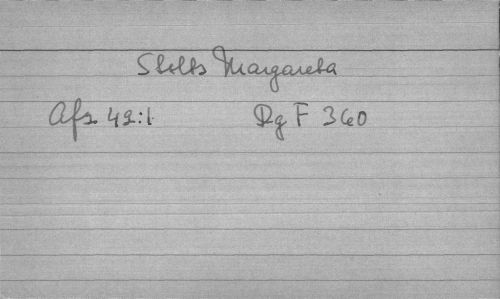 Stolts Margareta
Afs 42:1 Dg F 360